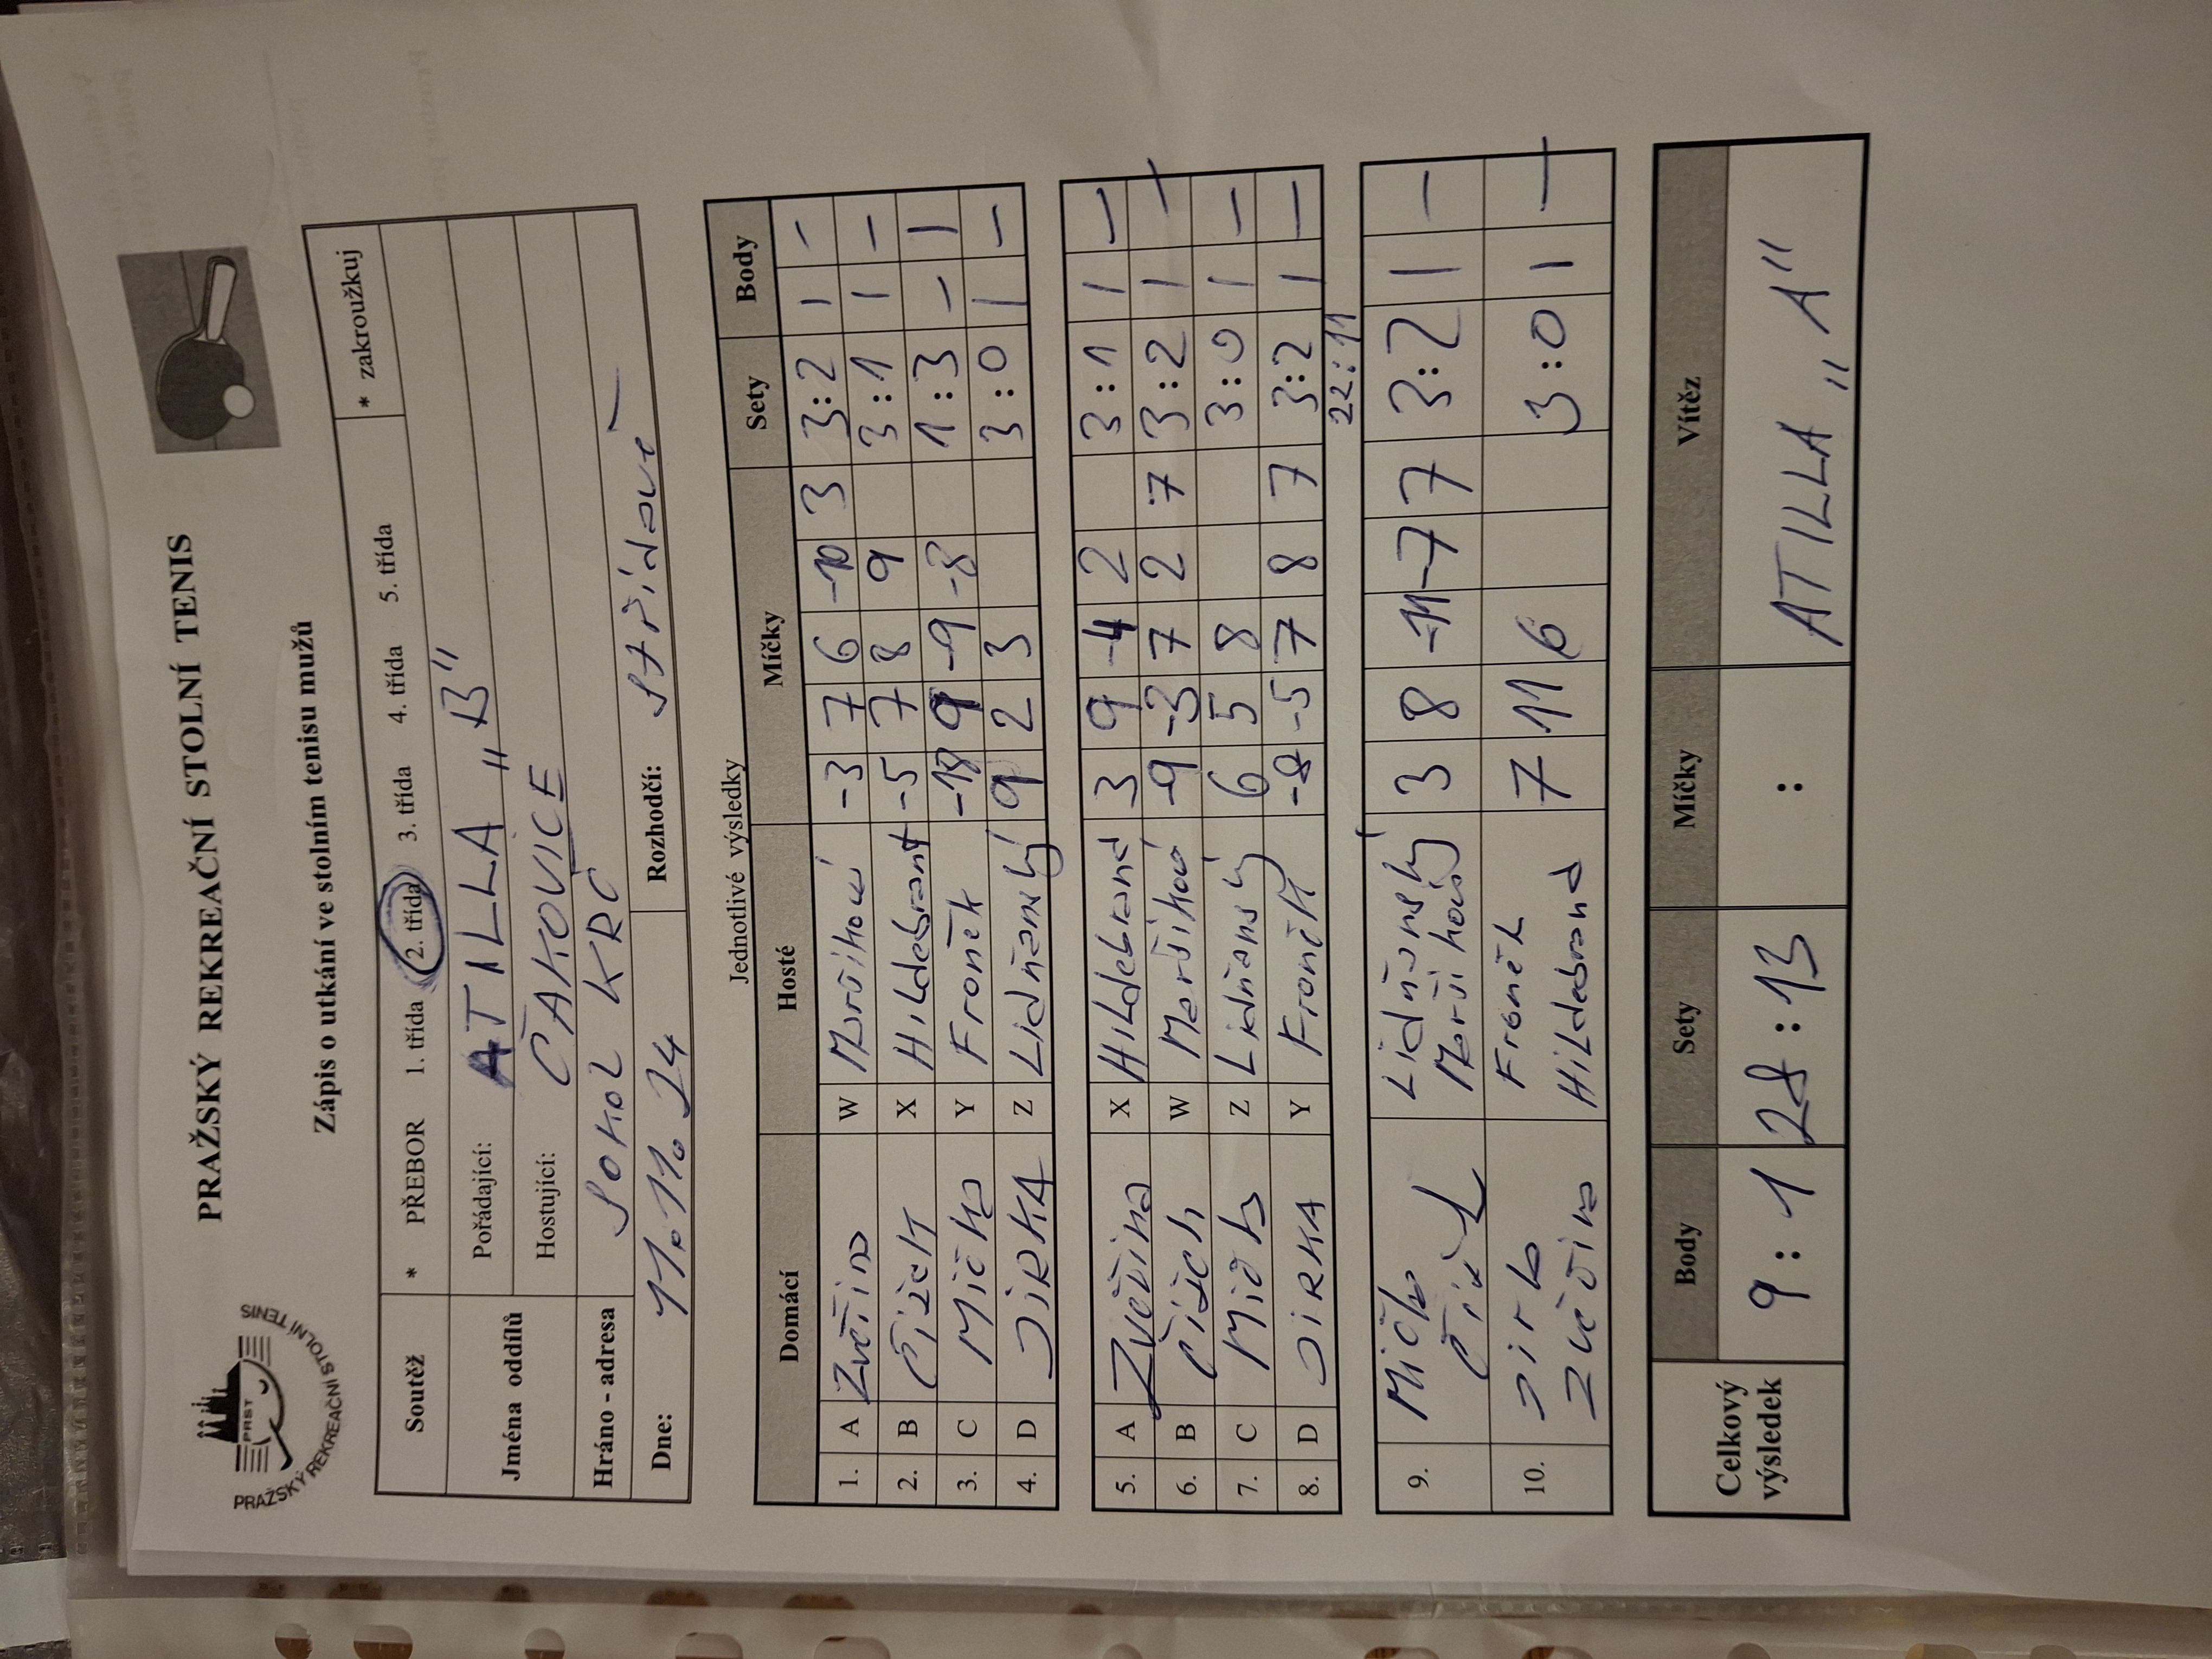 PRAŽSKÝ REKREAČNÍ STOLNÍ TENIS
PRST
PRAŽSKÝ REKREAČNÍ STOLNÍ TENIS
Zápis o utkání ve stolním tenisu mužů
Soutěž * PŘEBOR 1. třída 2. třída 3. třída 4. třída 5. třída * zakroužkuj
Jména oddílů Pořádající: ATILLA „B"
Hostující: ČAKOVICE
Hráno - adresa SOKOL KRČ
Dne: 11.11.24 Rozhodčí: střídavě
Jednotlivé výsledky
Domácí Hosté Míčky Sety Body
1. A Zvěřina W -3 7 6 -10 3 3:2 1 -
2. B Čížek X Hildebrant -5 7 8 9 3:1 1 -
3. C Mička Y Froněk 9 -9 -8 1:3 - 1
4. D JIRKA Z Lidňanský 9 2 3 3:0 1 -
5. A Zvěřina X Hildebrand 3 9 -4 2 3:1 1 -
6. B Čížek W -9 -3 7 2 7 3:2 1 -
7. C Mička Z Lidňanský 6 5 8 3:0 1 -
8. D JIRKA Y Froněk -8 -5 7 8 7 3:2 1 -
22:11
9. Mička Lidňanský 3 8 -11 -7 7 3:2 1 -
Čížek
10. Jirka Froněk 7 11 6 3:0 1 -
Zvěřina Hildebrand
Celkový výsledek Body Sety Míčky Vítěz
9:1 28:13 : ATILLA „A"